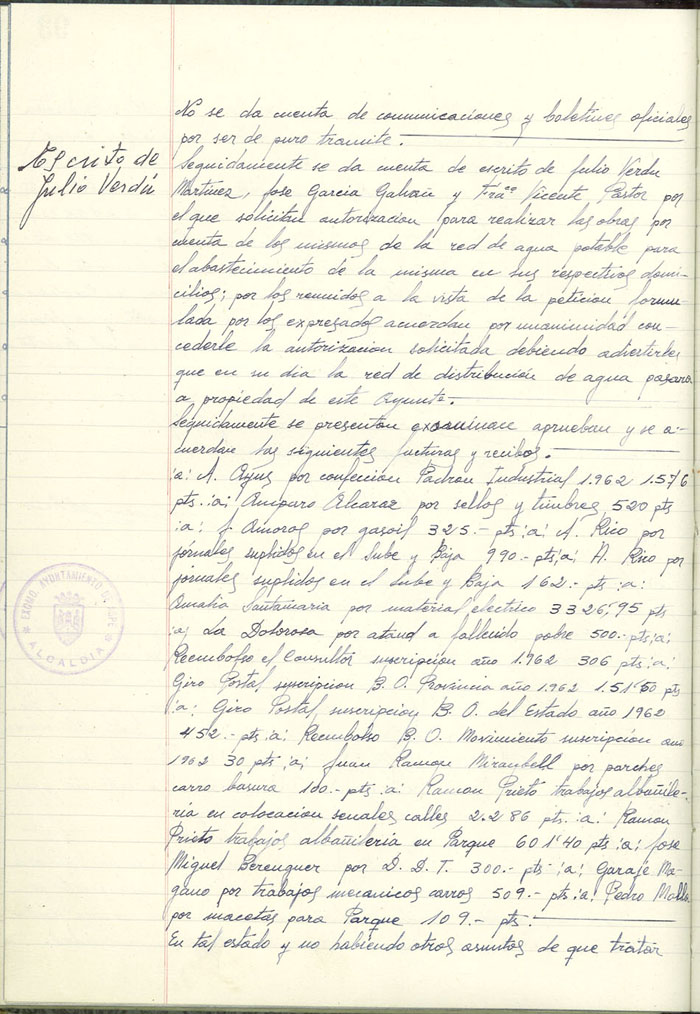 No se da cuenta de comunicaciones y boletines oficiales
por ser de puro tramite.
Escrito de
Julio Verdú
Seguidamente se da cuenta de escrito de Julio Verdu
Martinez, Jose Garcia Galvañ y Frãᶜᵒ Vicente Pastor por
el que solicitan autorizacion para realizar las obras por
cuenta de los mismos de la red de agua potable para
el abastecimiento de la misma en sus respectivos domi-
cilios; por los reunidos a la vista de la peticion formu-
lada por los expresados acuerdan por unanimidad con-
cederle la autorizacion solicitada debiendo advertirles
que en su dia la red de distribución de agua pasara
a propiedad de este Ayuntº.-
Seguidamente se presentan examinan aprueban y se a-
cuerdan las siguientes facturas y recibos.
:a: A. por confeccion Padron Industrial 1.962 1.576
pts.:a: Amparo Alcaraz por sellos y timbres 520 pts
:a: J. Amoros por gasoil 325.- pts :a: A. Rico por
jornales suplidos en el Sube y Baja 990.- pts :a: A. Rico por
jornales suplidos en el Sube y Baja 162.- pts :a:
Amalia Santamaria por material electrico 3326,95 pts
:a: La Dolorosa por ataud a fallecido pobre 500.- pts :a:
Reembolso el Consultor suscripcion año 1.962 306 pts :a:
Giro Postal suscripcion B. O. Provincia año 1.962 1.51'50 pts
:a: Giro Postal suscripcion B. O. del Estado año 1962
452.- pts :a: Reembolso B. O. Movimiento suscripcion año
1962 30 pts :a: Juan Ramon Mirambell por parches
carro basura 100.- pts :a: Ramon Prieto trabajos albañile-
ria en colocacion senales calles 2.286 pts. :a: Ramon
Prieto trabajos albañileria en Parque 601'40 pts :a: Jose
Miguel Berenguer por D. D. T. 300.- pts :a: Garaje Ma-
gano por trabajos mecanicos carros 509.- pts :a: Pedro Molla
por macetas para Parque 109.- pts.
En tal estado y no habiendo otros asuntos de que tratar
EXCMO. AYUNTAMIENTO D. ASPE
ALCALDIA